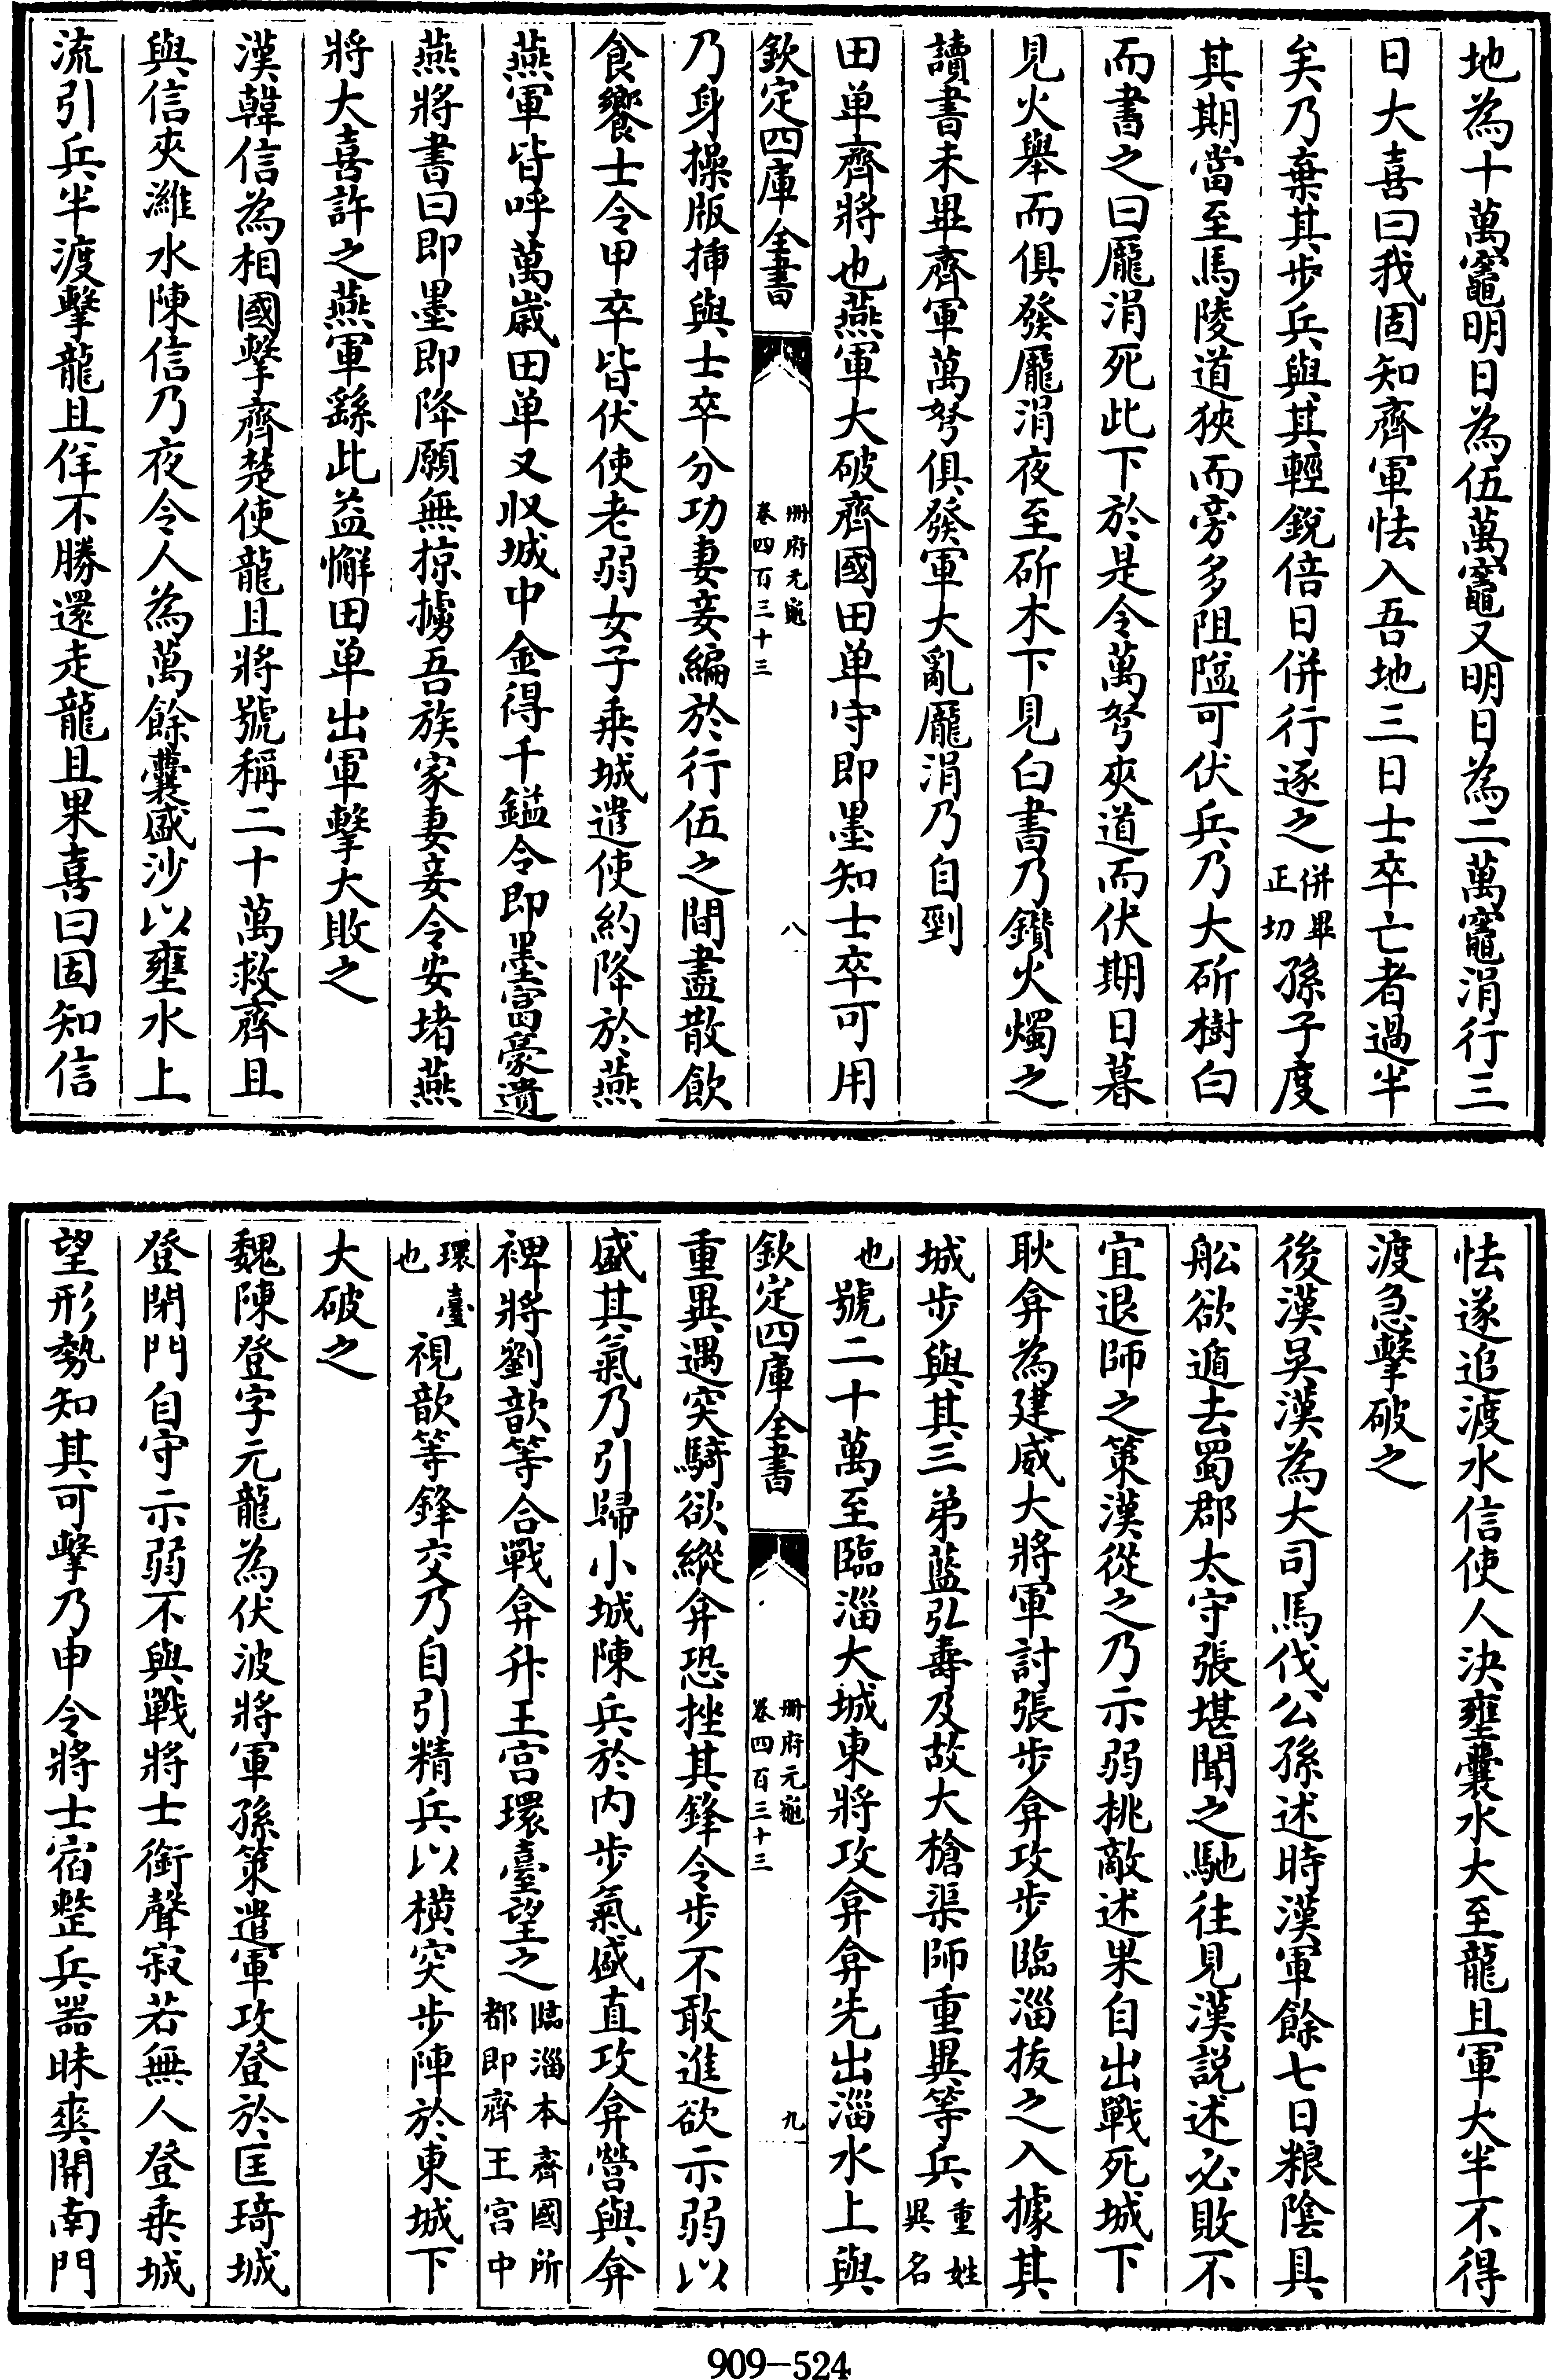 地為十萬竈明日為伍萬竈又明日為二萬竈涓行三
日大喜曰我固知齊軍怯入吾地三日士卒亡者過半
矣乃棄其步兵與其輕銳倍日併行逐之併畢正切孫子度
其期當至馬陵道狹而旁多阻隘可伏兵乃大斫樹白
而書之曰龐涓死此下於是令萬弩夾道而伏期日暮
見火舉而俱發龐涓夜至斫木下見白書乃鑽火燭之
讀書未畢齊軍萬弩俱發軍大亂龐涓乃自剄
田单齊將也燕軍大破齊國田单守即墨知士卒可用
欽定四庫全書
冊府元龜
卷四百三十三
八
乃身操版揷與士卒分功妻妾編於行伍之間盡散飲
食饗士令甲卒皆伏使老弱女子乘城遣使約降於燕
燕軍皆呼萬歲田单又収城中金得千鎰令即墨富豪遺
燕將書曰即墨即降願無掠擄吾族家妻妾令安堵燕
將大喜許之燕軍繇此益懈田单出軍擊大敗之
漢韓信為相國擊齊楚使龍且將號稱二十萬救齊且
與信夾濰水陳信乃夜令人為萬餘囊盛沙以壅水上
流引兵半渡擊龍且佯不勝還走龍且果喜曰固知信
怯遂追渡水信使人決壅囊水大至龍且軍大半不得
渡急擊破之
後漢吳漢為大司馬伐公孫述時漢軍餘七日粮陰具
舩欲遁去蜀郡太守張堪聞之馳往見漢説述必敗不
宜退師之策漢從之乃示弱挑敵述果自出戰死城下
耿弇為建威大將軍討張步弇攻步臨淄拔之入據其
城步與其三弟藍弘壽及故大槍渠師重異等兵重姓異名
也號二十萬至臨淄大城東將攻弇弇先出淄水上與
欽定四庫全書
冊府元龜
卷四百三十三
九
重異遇突騎欲縱弇恐挫其鋒令步不敢進欲示弱以
盛其氣乃引歸小城陳兵於内步氣盛直攻弇營與弇
裨將劉歆等合戰弇升王宫環臺望之臨淄本齊國所都即齊王宫中
環臺也視歆等鋒交乃自引精兵以橫突步陣於東城下
大破之
魏陳登字元龍為伏波將軍孫策遣軍攻登於匡琦城
登閉門自守示弱不與戰將士銜聲寂若無人登乘城
望形勢知其可擊乃申令將士宿整兵器昧爽開南門
909-524